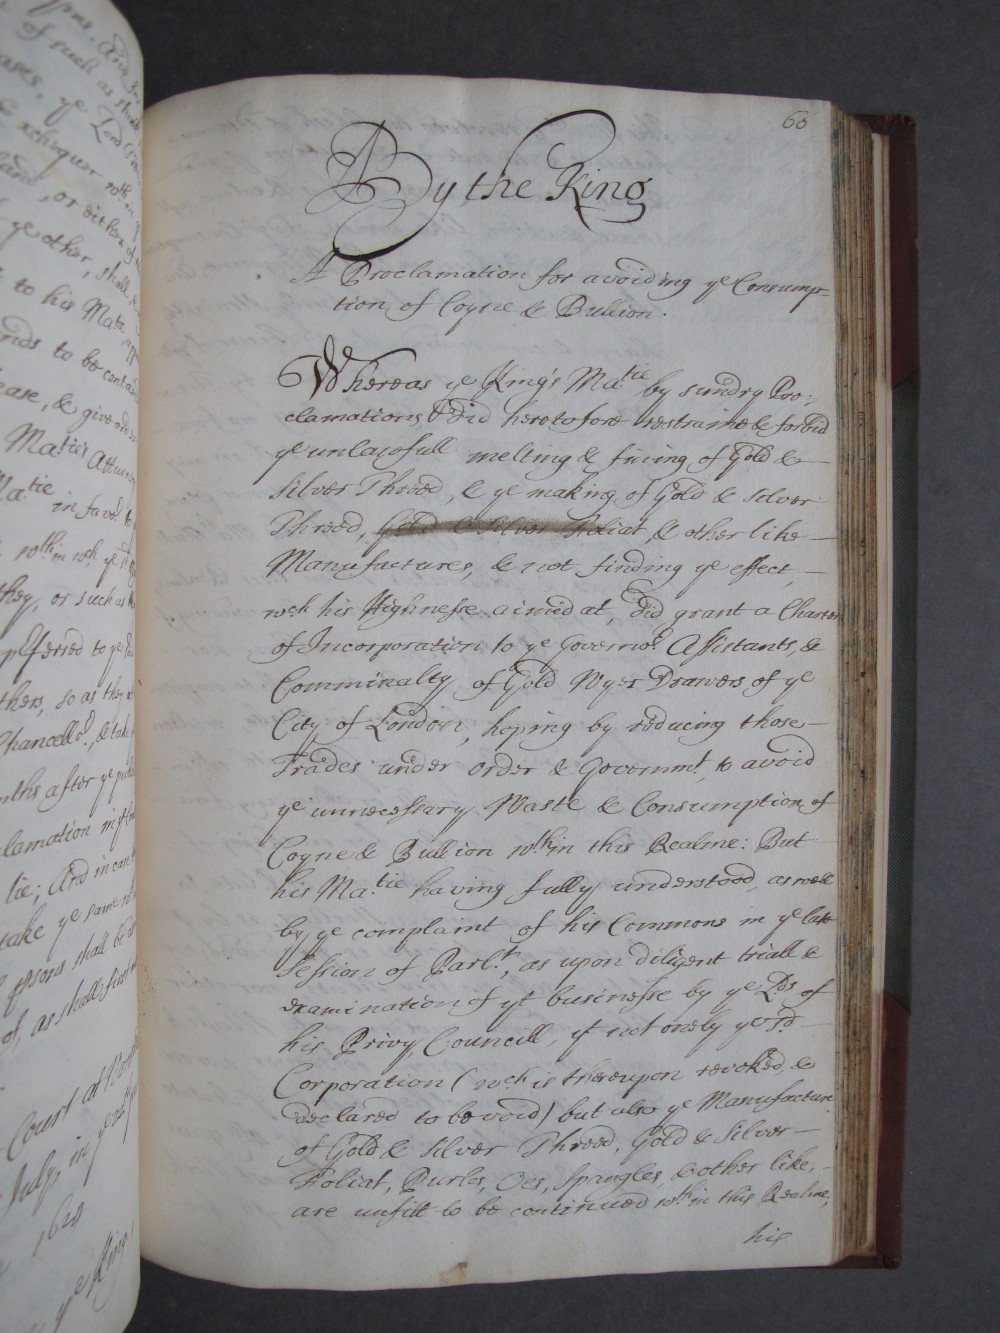 pms, And
of such as shall
ases, ye Lord Trea
Exchequer wth.in
land, or either of
ye other, shall
to his Matie,
nds to be contain
ease, & give order
Maties Attur
Matie in favor. to
wth.in wch. ye sd.
they, or such as
pferred to ye
thers, so as they
Chancellor., & take
nths after ye pu
clamation
lie; And in case
take ye same
psons shall be
of, as shall first
Court at
July, in ye
1624
ye King.
66
By the King
A Proclamation for avoiding ye Consump-
tion of Coyne & Bullion.
Whereas ye King's Matie by sundry Pro:,
clamations did heretofore restraine & forbid
ye unlawfull melting & fining of Gold &
Silver Threed, & ye making of Gold & Silver
Threed, Gold & Silver Foliat, & other like
Manufactures, & not finding ye effect,
wch. his Highnesse aimed at, did grant a Charter
of Incorporation to ye Governor. Assistants, &
Comminalty of Gold Wyer Drawers of ye
City of London, hoping by reducing those
Trades under order & Governmt., to avoid
ye unnecessary Waste & Consumption of
Coyne & Bullion wth.in this Realme: But
his Ma.tie having fully understood, as well
by ye complaint of his Commons in ye late
Session of Parlt., as upon diligent triall &
examination of yt businesse by ye Lds. of
his Privy Councill, yt not onely ye sd.
Corporation (wch. is thereupon revoked, &
declared to be void) but also ye Manufacture
of Gold & Silver Threed, Gold & Silver
Foliat, Purles, Oes, Spangles, & other like,
are unfitt to be continued wth.in this Realme,
his